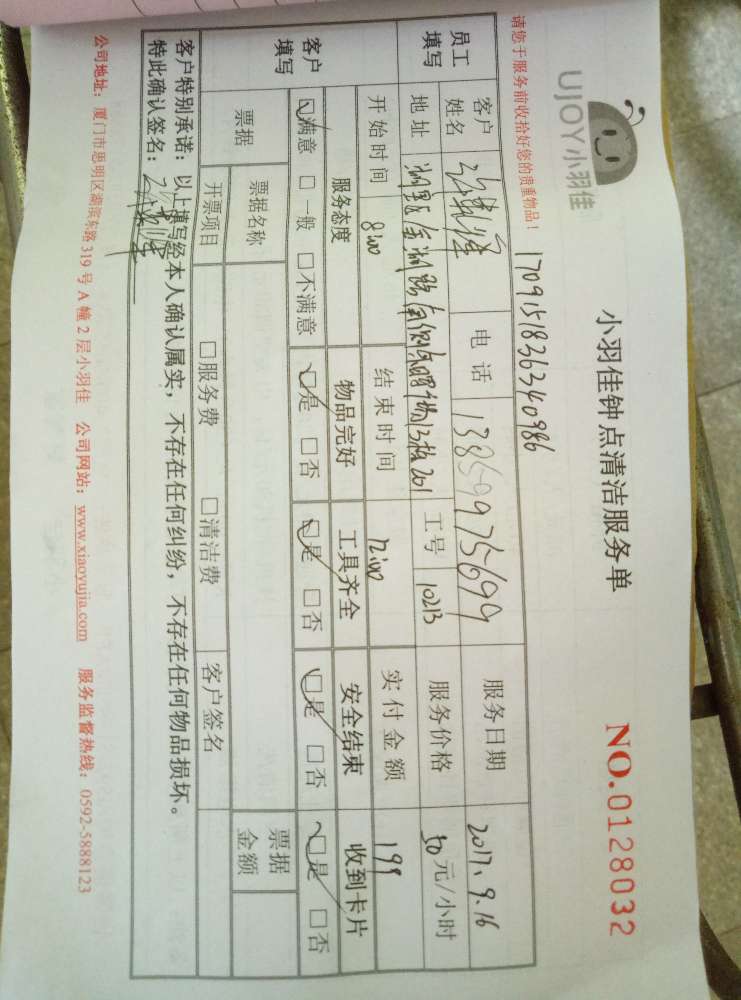 UJOY小羽佳
小羽佳钟点清洁服务单
NO.0128032
请您于服务前收拾好您的贵重物品！
1709151836340986
员工填写
客户姓名
电话 13859975699
服务日期 2017.9.16
地址
工号 10213
服务价格 50元/小时
开始时间 8:00
结束时间 12:00
实付金额 199
客户填写
服务态度 物品完好 工具齐全 安全结束 收到卡片
□满意 □一般 □不满意 □是 □否 □是 □否 □是 □否 □是 □否
票据
票据名称
票据金额
开票项目 □服务费 □清洁费
客户签名
客户特别承诺：以上填写经本人确认属实，不存在任何纠纷，不存在任何物品损坏。
特此确认签名：
公司地址：厦门市思明区湖滨东路319号A幢2层小羽佳 公司网站：www.xiaoyujia.com 服务监督热线：0592-5888123